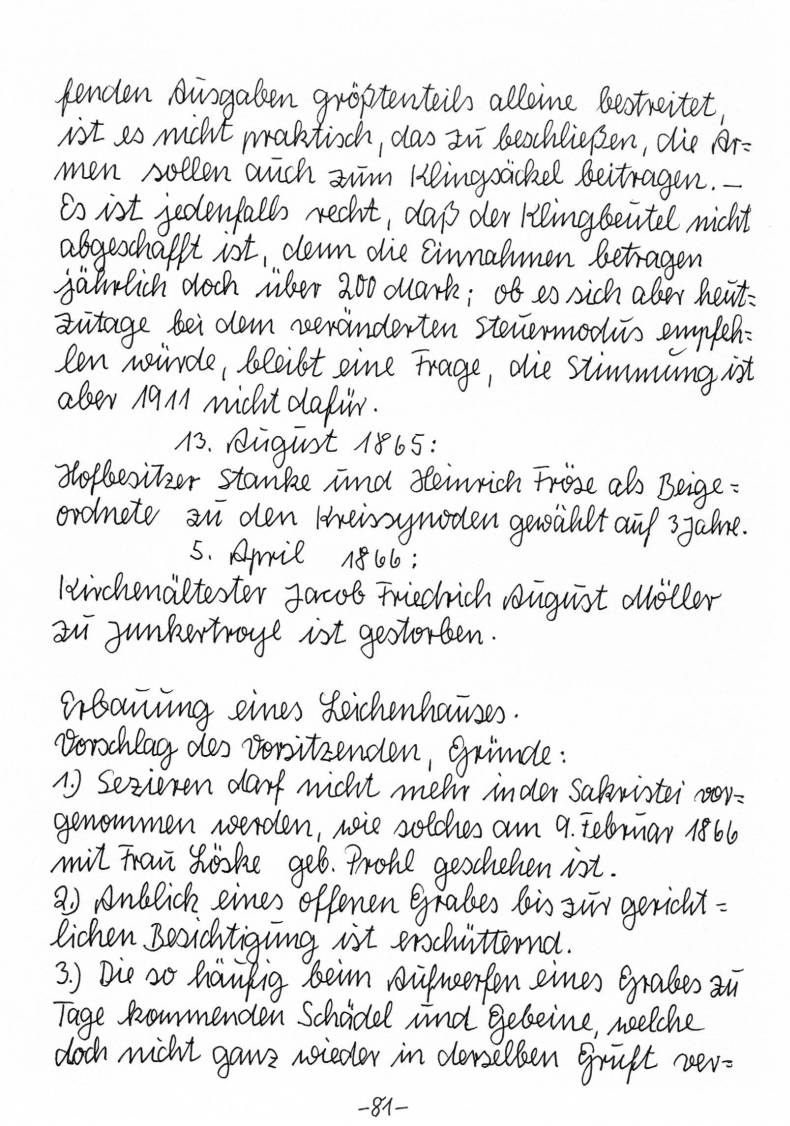 fenden Ausgaben größtenteils alleine bestreitet,
ist es nicht praktisch, das zu beschließen, die Ar=
men sollen auch zum Klingsäckel beitragen. –
Es ist jedenfalls recht, daß der Klingbeutel nicht
abgeschafft ist, denn die Einnahmen betragen
jährlich doch über 200 Mark; ob es sich aber heut=
zutage bei dem veränderten Steuermodus empfeh=
len würde, bleibt eine Frage, die Stimmung ist
aber 1911 nicht dafür.
13. August 1865:
Hofbesitzer Stanke und Heinrich Fröse als Beige=
ordnete zu den Kreissynoden gewählt auf 3 Jahre.
5. April 1866:
Kirchenältester Jacob Friedrich August Möller
zu Junkertroyl ist gestorben.
Erbauung eines Leichenhauses.
Vorschlag des Vorsitzenden, Gründe:
1.) Sezieren darf nicht mehr in der Sakristei vor=
genommen werden, wie solches am 9. Februar 1866
mit Frau Löske geb. Prohl geschehen ist.
2.) Anblick eines offenen Grabes bis zur gericht=
lichen Besichtigung ist erschütternd.
3.) Die so häufig beim Aufwerfen eines Grabes zu
Tage kommenden Schädel und Gebeine, welche
doch nicht ganz wieder in derselben Gruft ver=
-81-